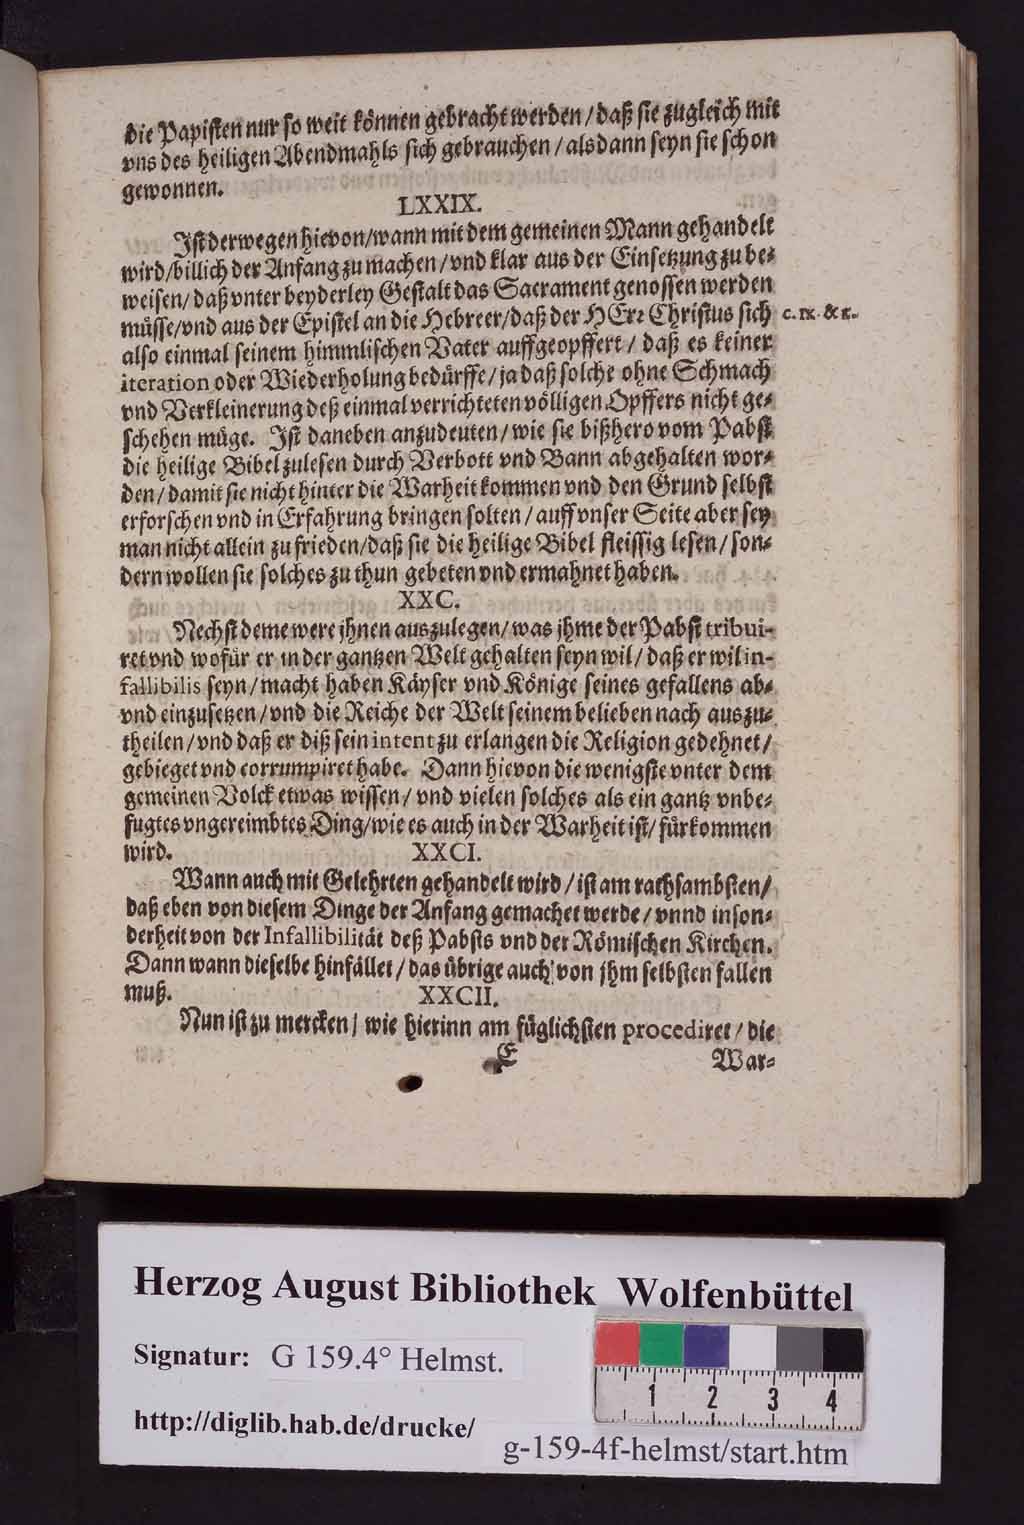 die Papisten nur so weit können gebracht werden / daß sie zugleich mit
vns des heiligen Abendmahls sich gebrauchen / alsdann seyn sie schon
gewonnen.
LXXIX.
Ist derwegen hievon / wann mit dem gemeinen Mann gehandelt
wird / billich der Anfang zu machen / vnd klar aus der Einsetzung zu be-
weisen / daß vnter beyderley Gestalt das Sacrament genossen werden
müsse / vnd aus der Epistel an die Hebreer / daß der HErr Christus sich c. IX. & X.
also einmal seinem himmlischen Vater auffgeopffert / daß es keiner
iteration oder Wiederholung bedürffe / ja daß solche ohne Schmach
vnd Verkleinerung deß einmal verrichteten völligen Opffers nicht ge-
schehen müge. Ist daneben anzudeuten / wie sie bißhero vom Pabst
die heilige Bibel zulesen durch Verbott vnd Bann abgehalten wor-
den / damit sie nicht hinter die Warheit kommen vnd den Grund selbst
erforschen vnd in Erfahrung bringen solten / auff vnser Seite aber sey
man nicht allein zu frieden / daß sie die heilige Bibel fleissig lesen / son-
dern wollen sie solches zu thun gebeten vnd ermahnet haben.
XXC.
Nechst deme were jhnen auszulegen / was jhme der Pabst tribui-
ret vnd wofür er in der gantzen Welt gehalten seyn wil / daß er wil in-
fallibilis seyn / macht haben Käyser vnd Könige seines gefallens ab-
vnd einzusetzen / vnd die Reiche der Welt seinem belieben nach auszu-
theilen / vnd daß er diß sein intent zu erlangen die Religion gedehnet /
gebieget vnd corrumpiret habe. Dann hievon die wenigste vnter dem
gemeinen Volck etwas wissen / vnd vielen solches als ein gantz vnbe-
fugtes vngereimbtes Ding / wie es auch in der Warheit ist / fürkommen
wird. XXCI.
Wann auch mit Gelehrten gehandelt wird / ist am rathsambsten /
daß eben von diesem Dinge der Anfang gemachet werde / vnnd inson-
derheit von der Infallibilität deß Pabsts vnd der Römischen Kirchen.
Dann wann dieselbe hinfället / das übrige auch von jhm selbsten fallen
muß. XXCII.
Nun ist zu mercken / wie hierinn am füglichsten procediret / die
E War-
Herzog August Bibliothek Wolfenbüttel
Signatur: G 159.4° Helmst.
1 2 3 4
http://diglib.hab.de/drucke/
g-159-4f-helmst/start.htm